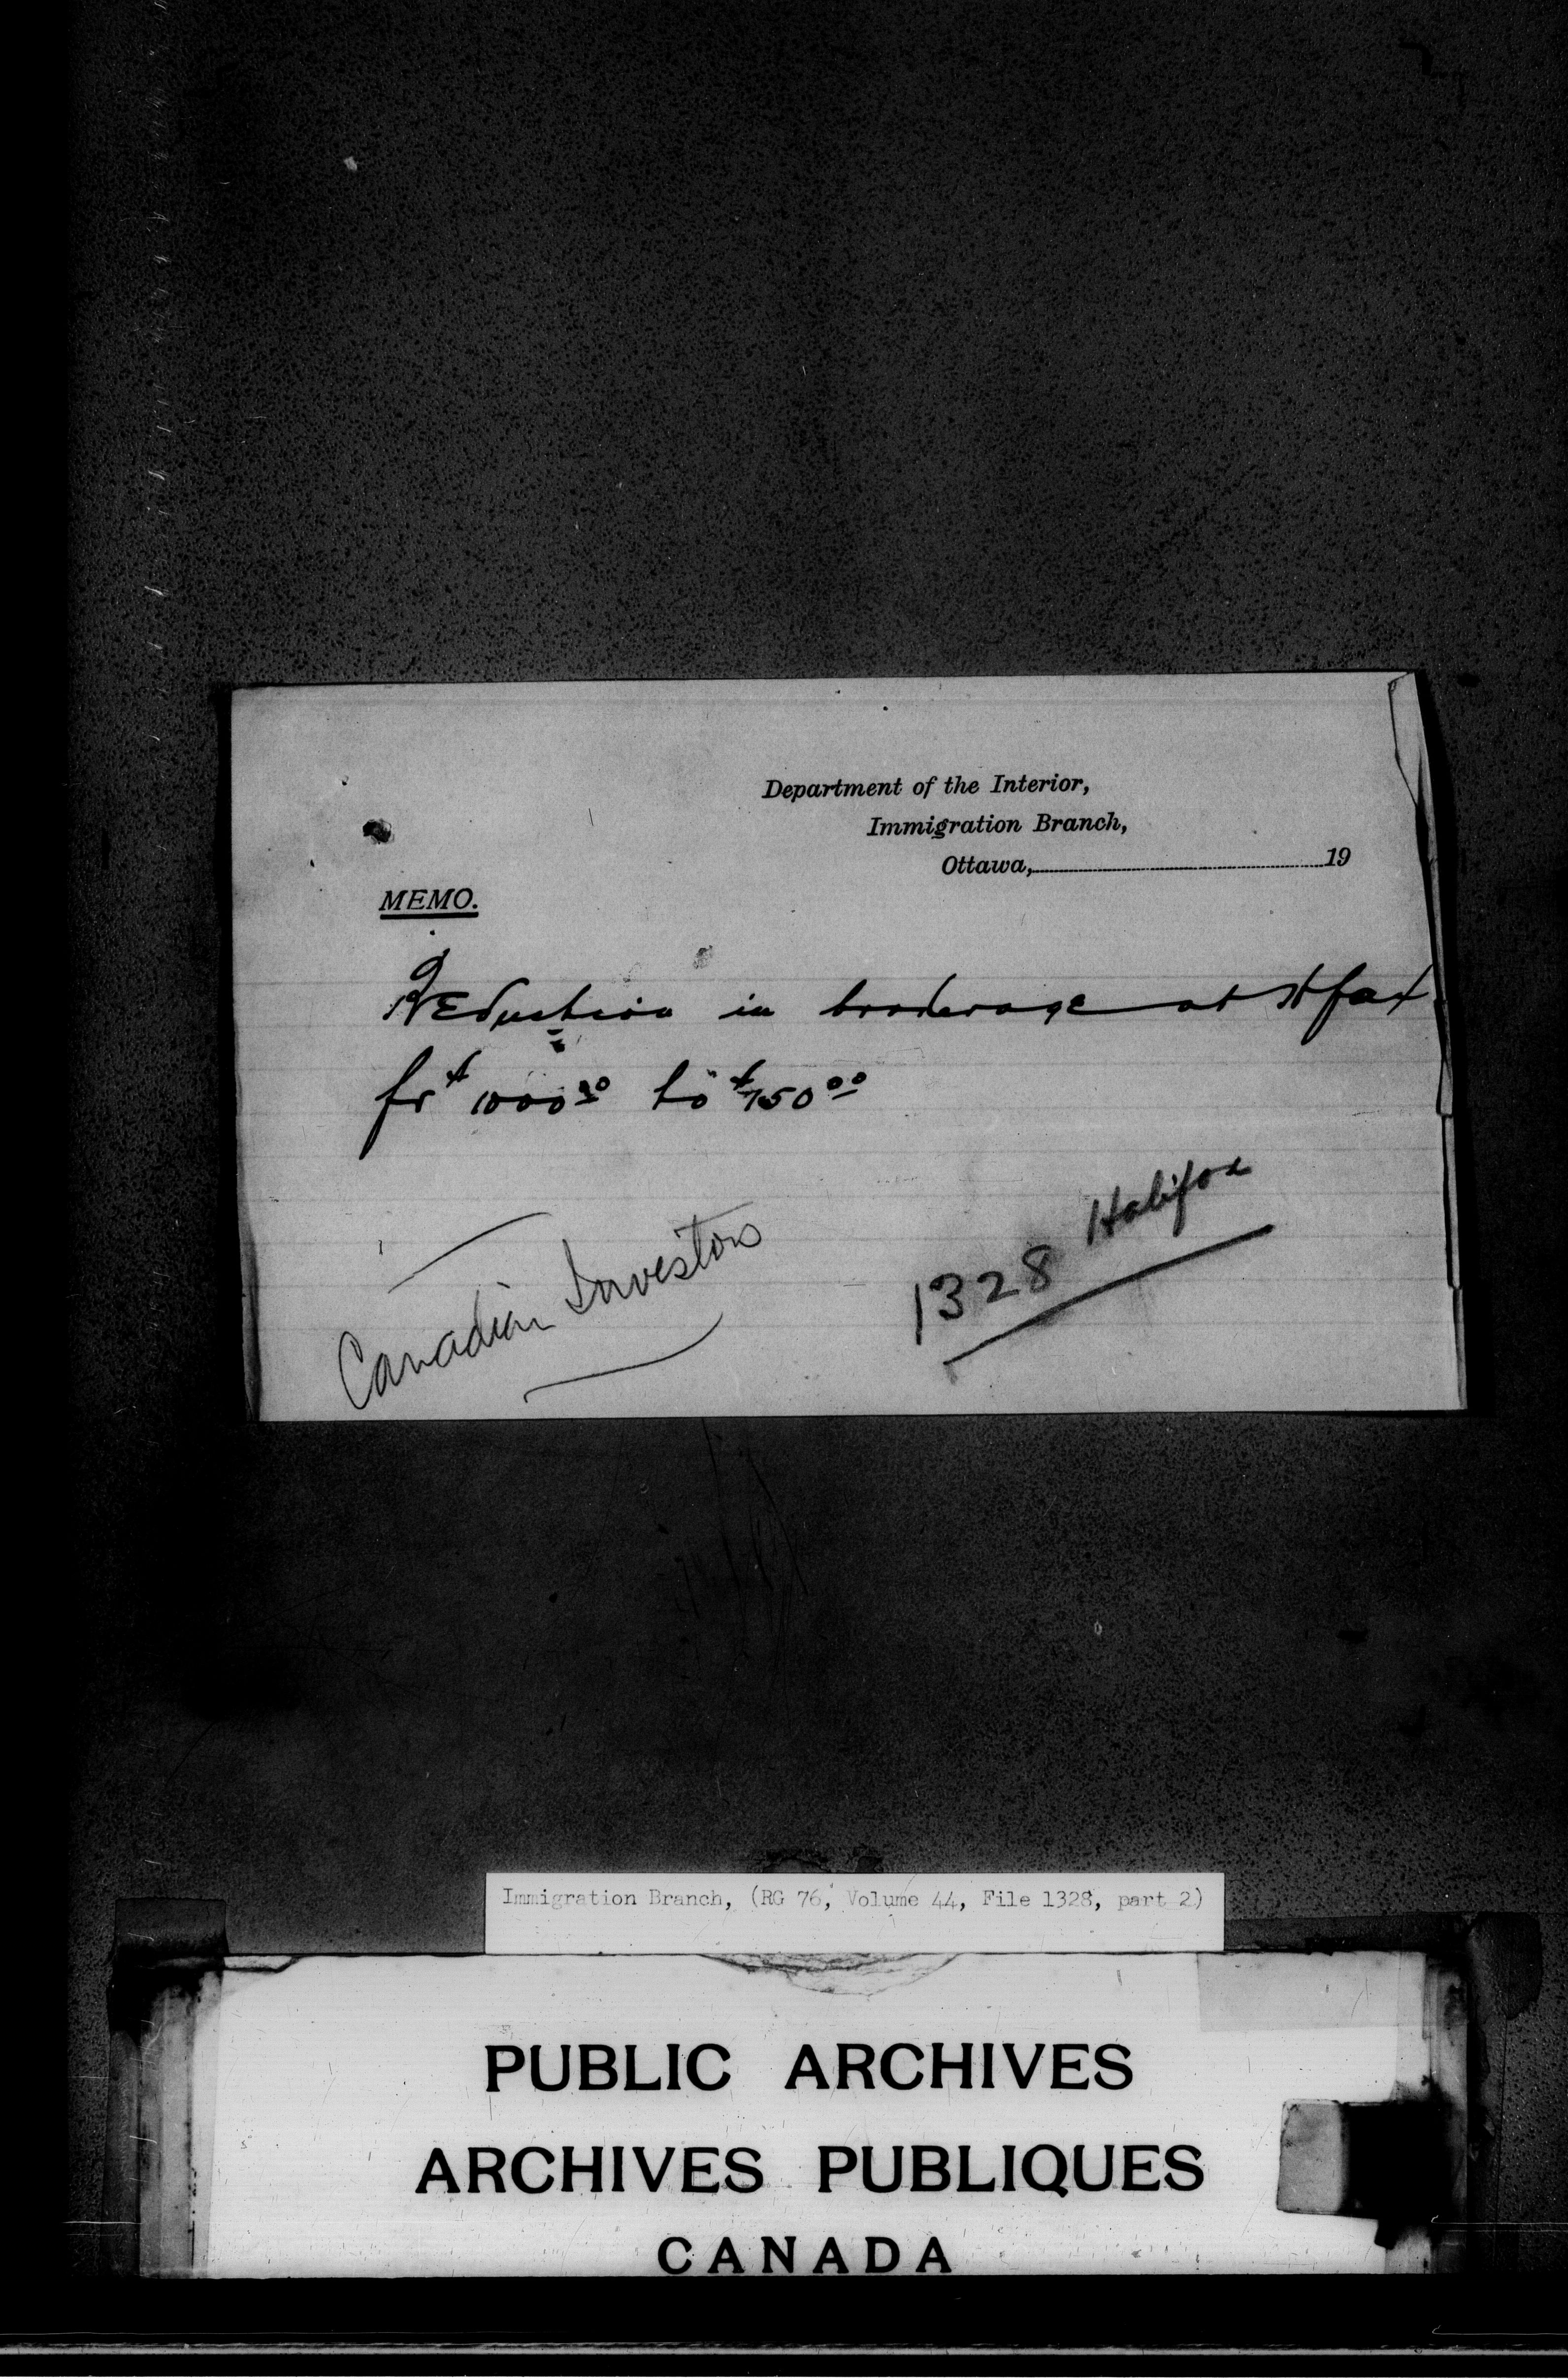 Department of the Interior,
Immigration Branch,
Ottawa, 19
MEMO.
Reduction in brokerage at Hfax
fr $1000.00 to $750.00
Canadian Investors
1328 Halifax
Immigration Branch, (RG 76, Volume 44, File 1328, part 2)
PUBLIC ARCHIVES
ARCHIVES PUBLIQUES
CANADA